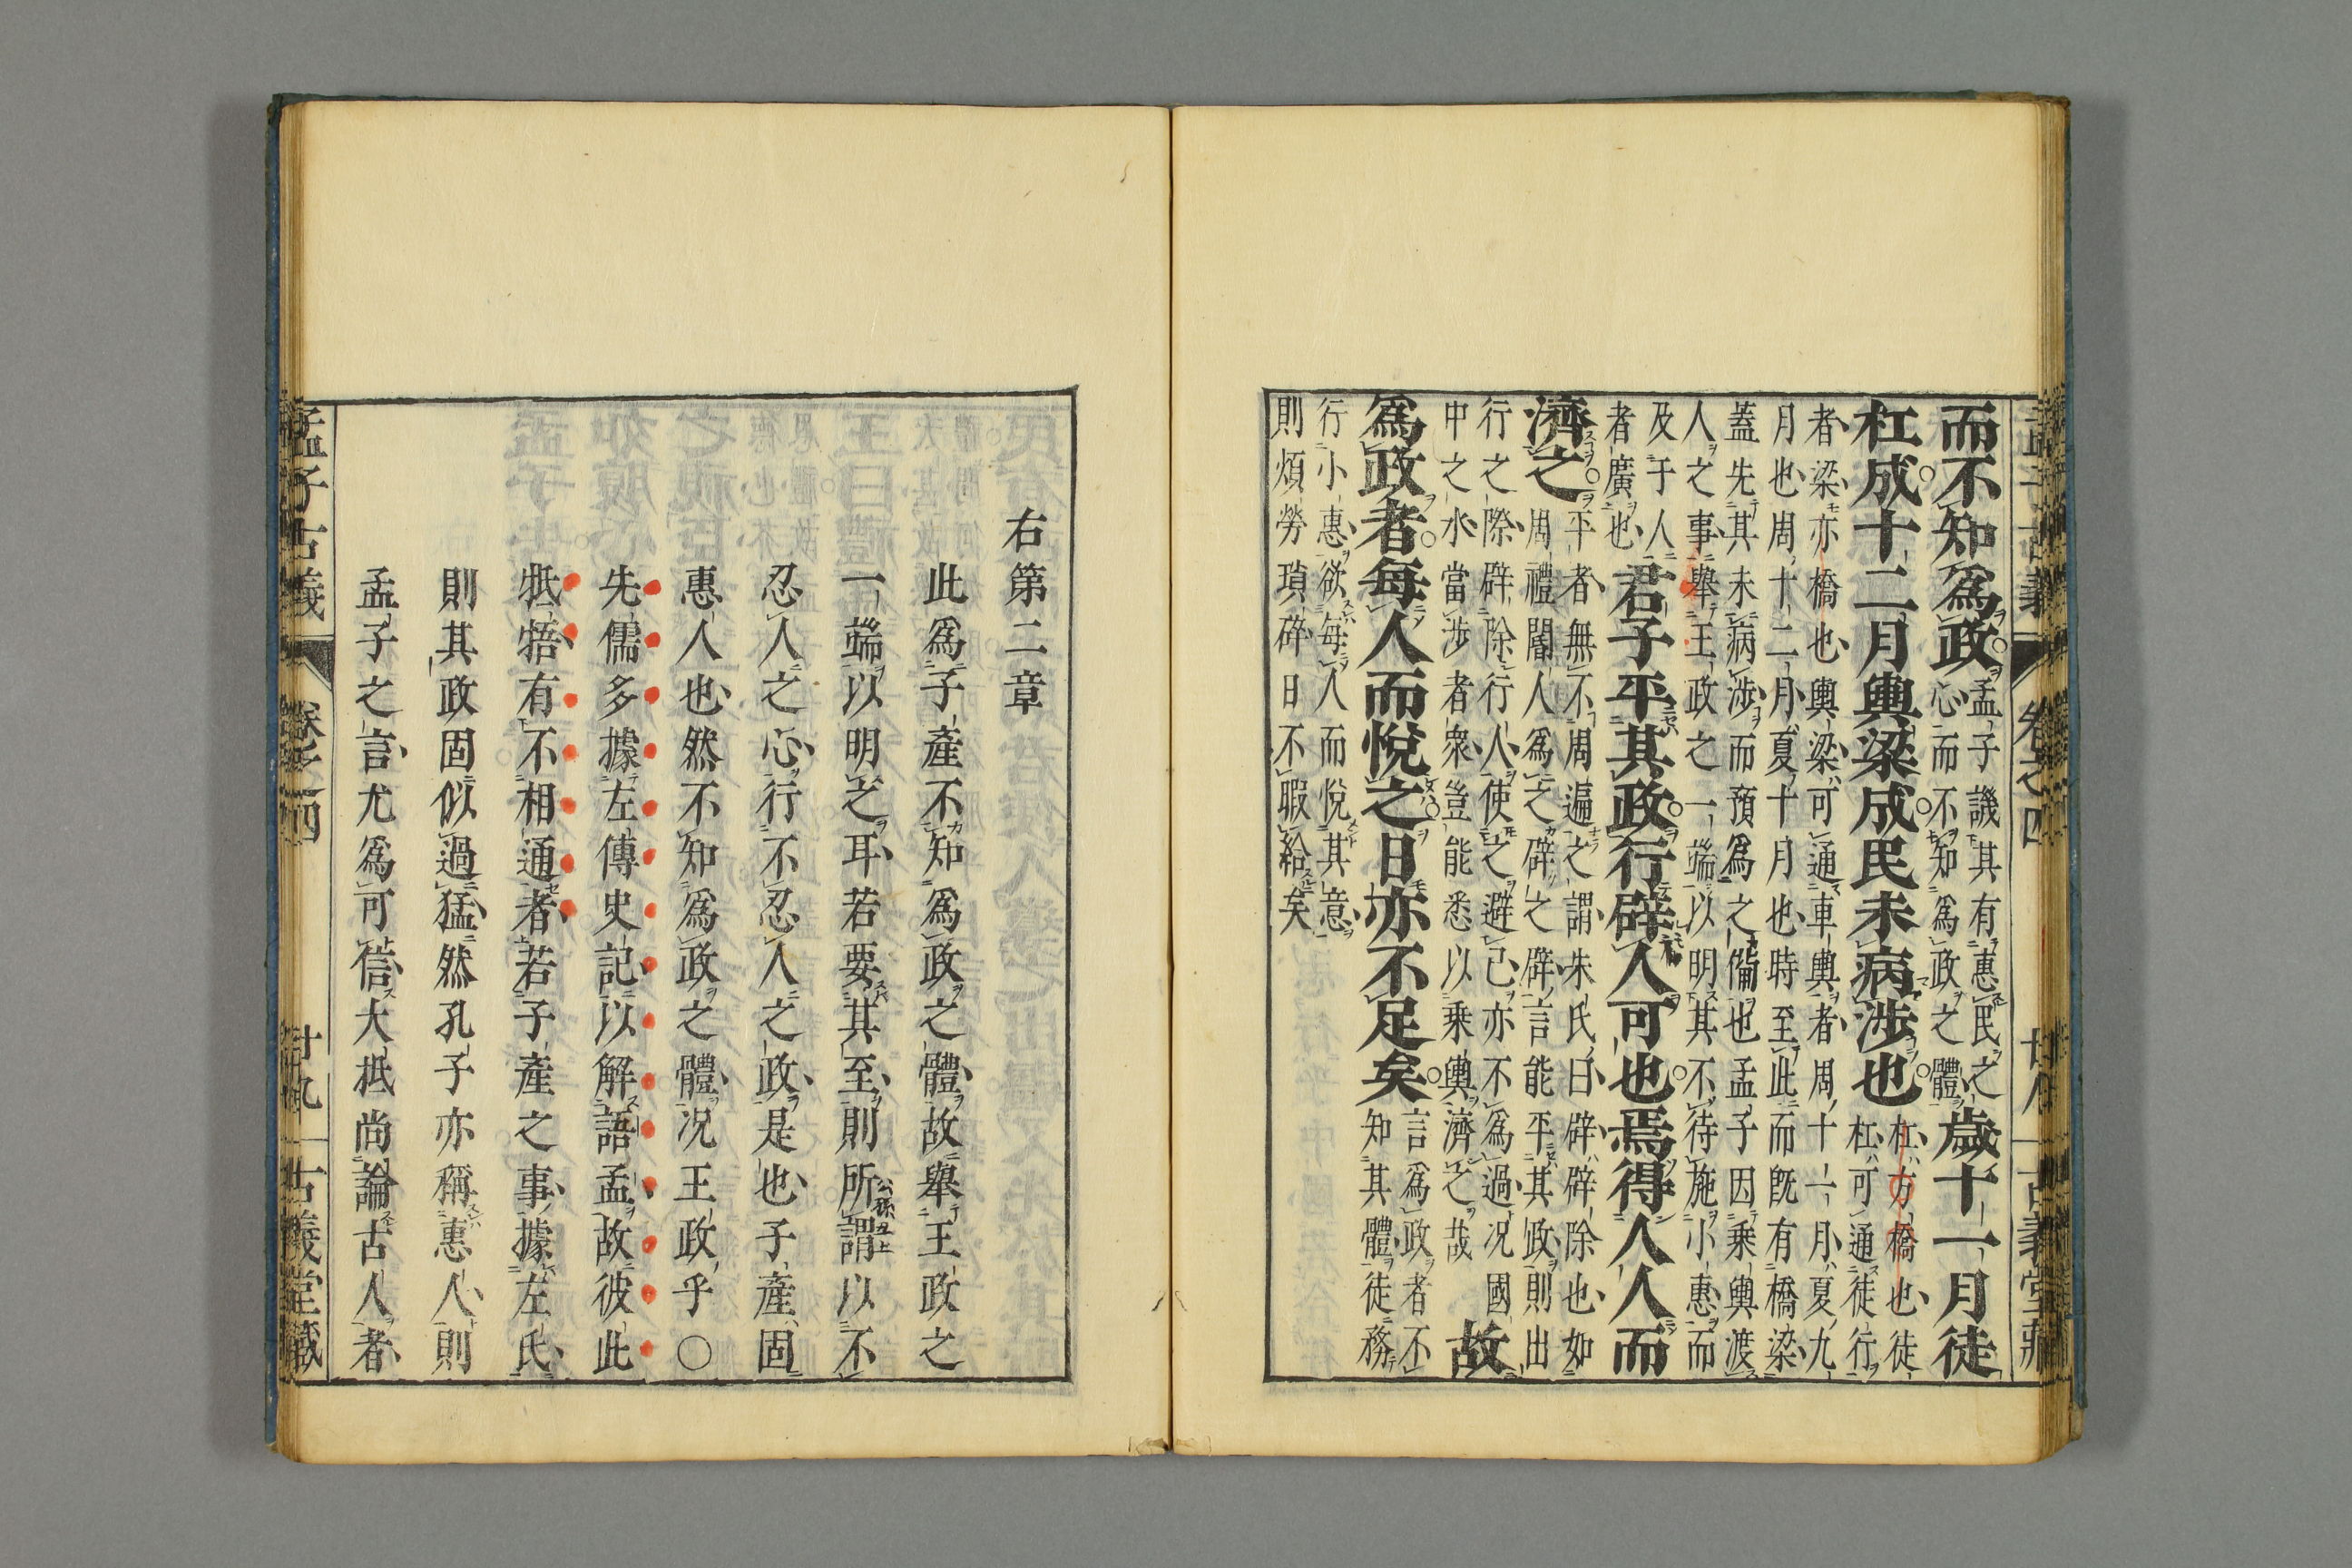 而不知爲政孟子譏其有惠民之心而不知爲政之體歲十一月徒
杠成十二月輿梁成民未病涉也杠方橋也徒杠可通徒行
者梁亦橋也輿梁可通車輿者周十一月夏九
月也周十二月夏十月也時至此而既有橋梁
蓋先其未病涉而預爲之備也孟子因乘輿渡
人之事舉王政之一端以明其不待施小惠而
及于人
者廣也君子平其政行辟人可也焉得人人而
濟之平者無不周遍之謂朱氏曰辟辟除也如
周禮閽人爲之辟之辟言能平其政則出
行之際辟除行人使之避己亦不爲過况國
中之水當涉者衆豈能悉以乘輿濟之哉故
爲政者每人而悅之日亦不足矣言爲政者不知其體徒務
行小惠欲每人而悅其意
則煩勞瑣碎日不暇給矣
右第二章
此爲子產不知爲政之體故舉王政之
一端以明之耳若要其至則所謂以不
公孫丑上
忍人之心行不忍人之政是也子產固
惠人也然不知爲政之體况王政乎○
先儒多據左傳史記以解語孟故彼此
牴牾有不相通者若子產之事據左氏
則其政固似過猛然孔子亦稱惠人則
孟子之言尤爲可信大抵尚論古人者
孟子古義 卷之四 廿九 古義堂藏